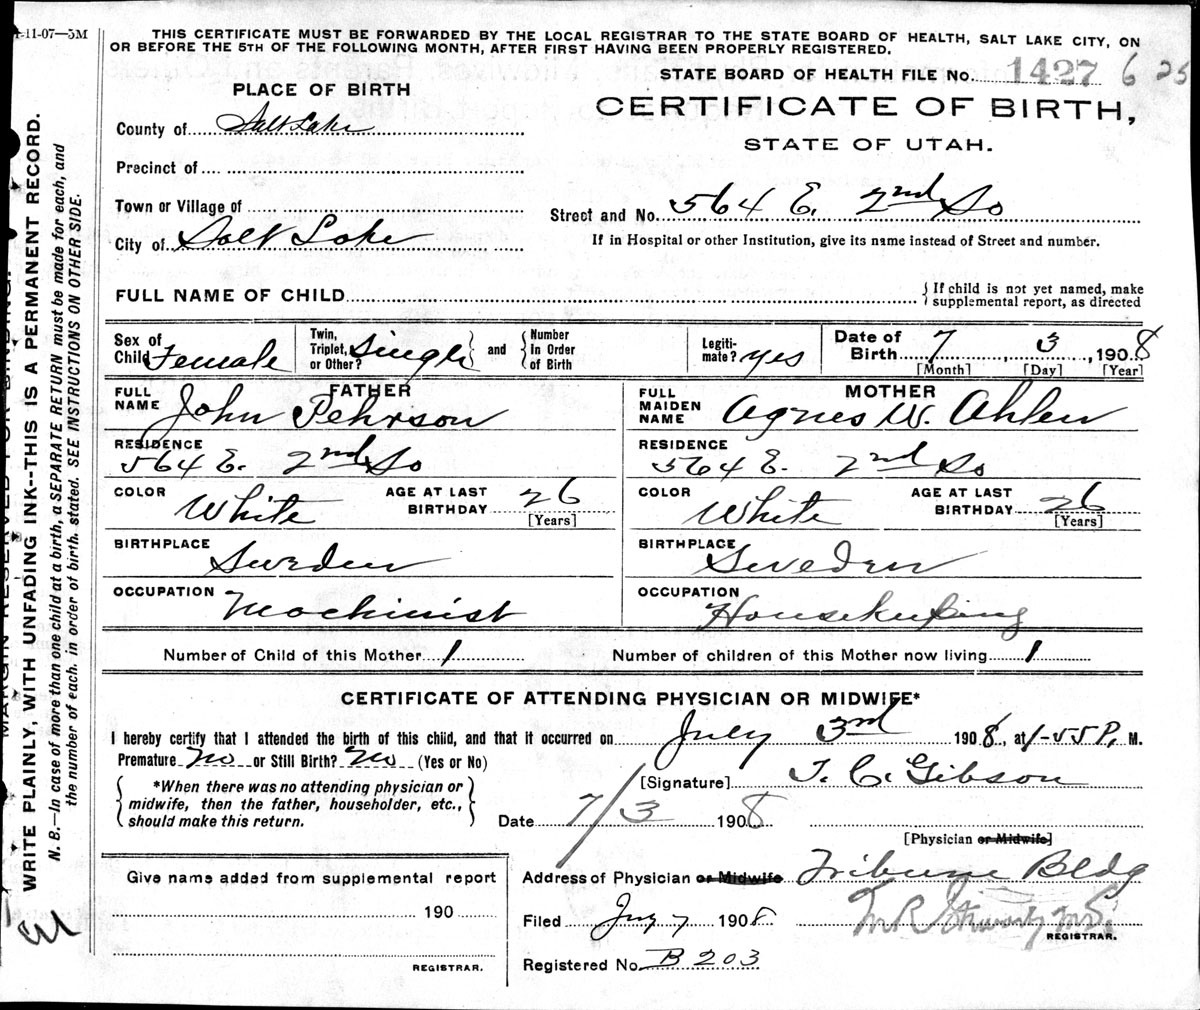 -11-07—5M
THIS CERTIFICATE MUST BE FORWARDED BY THE LOCAL REGISTRAR TO THE STATE BOARD OF HEALTH, SALT LAKE CITY, ON
OR BEFORE THE 5TH OF THE FOLLOWING MONTH, AFTER FIRST HAVING BEEN PROPERLY REGISTERED.
STATE BOARD OF HEALTH FILE No. 1427 625
PLACE OF BIRTH
CERTIFICATE OF BIRTH,
STATE OF UTAH.
County of Salt Lake
Precinct of
Town or Village of
Street and No. 564 E. 2nd So
City of Salt Lake
If in Hospital or other Institution, give its name instead of Street and number.
FULL NAME OF CHILD
{If child is not yet named, make
supplemental report, as directed
Sex of Child Female
Twin, Triplet, or Other? Single
and
Number In Order of Birth
Legiti-mate? yes
Date of Birth 7 3, 1908
[Month] [Day] [Year]
FATHER
FULL NAME John Pehrson
MOTHER
FULL MAIDEN NAME Agnes W. Ahlen
RESIDENCE
564 E. 2nd So
RESIDENCE
564 E. 2nd So
COLOR White
AGE AT LAST BIRTHDAY 26
[Years]
COLOR White
AGE AT LAST BIRTHDAY 26
[Years]
BIRTHPLACE Sweden
BIRTHPLACE Sweden
OCCUPATION Machinist
OCCUPATION Housekeeping
Number of Child of this Mother 1
Number of children of this Mother now living 1
CERTIFICATE OF ATTENDING PHYSICIAN OR MIDWIFE*
I hereby certify that I attended the birth of this child, and that it occurred on July 3rd 1908, at 1-55 P. M.
Premature No or Still Birth? No (Yes or No)
*When there was no attending physician or
midwife, then the father, householder, etc.,
should make this return.
[Signature] T. C. Gibson
Date 7/3 1908
[Physician or Midwife]
Give name added from supplemental report
190
REGISTRAR.
Address of Physician or Midwife Tribune Bldg
Filed July 7 1908
M R Stewart M.D.
REGISTRAR.
Registered No. B 203
MARGIN RESERVED FOR BINDING.
WRITE PLAINLY, WITH UNFADING INK--THIS IS A PERMANENT RECORD.
N. B.—In case of more than one child at a birth, a SEPARATE RETURN must be made for each, and
the number of each, in order of birth, stated. SEE INSTRUCTIONS ON OTHER SIDE.